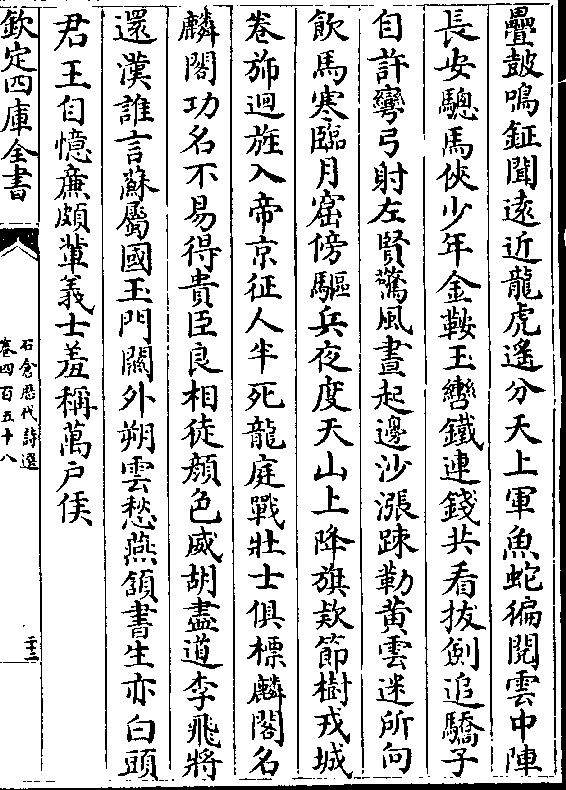 疊鼓鳴鉦聞遠近龍虎遙分天上軍魚蛇徧閱雲中陣
長安驄馬俠少年金鞍玉轡鐵連錢共看拔劍追驕子
自許彎弓射左賢驚風晝起邊沙漲踈勒黄雲迷所向
飲馬寒臨月窟傍驅兵夜度天山上降旗欵節樹戎城
卷斾迴旌入帝京征人半死龍庭戰壯士俱標麟閣名
麟閣功名不易得貴臣良相徒顔色威胡盡道李飛將
還漢誰言蘇屬國玉門關外朔雲愁燕頷書生亦白頭
君王自憶廉頗輩義士羞稱萬户侯
欽定四庫全書
石倉歷代詩選
卷四百五十八
二十二